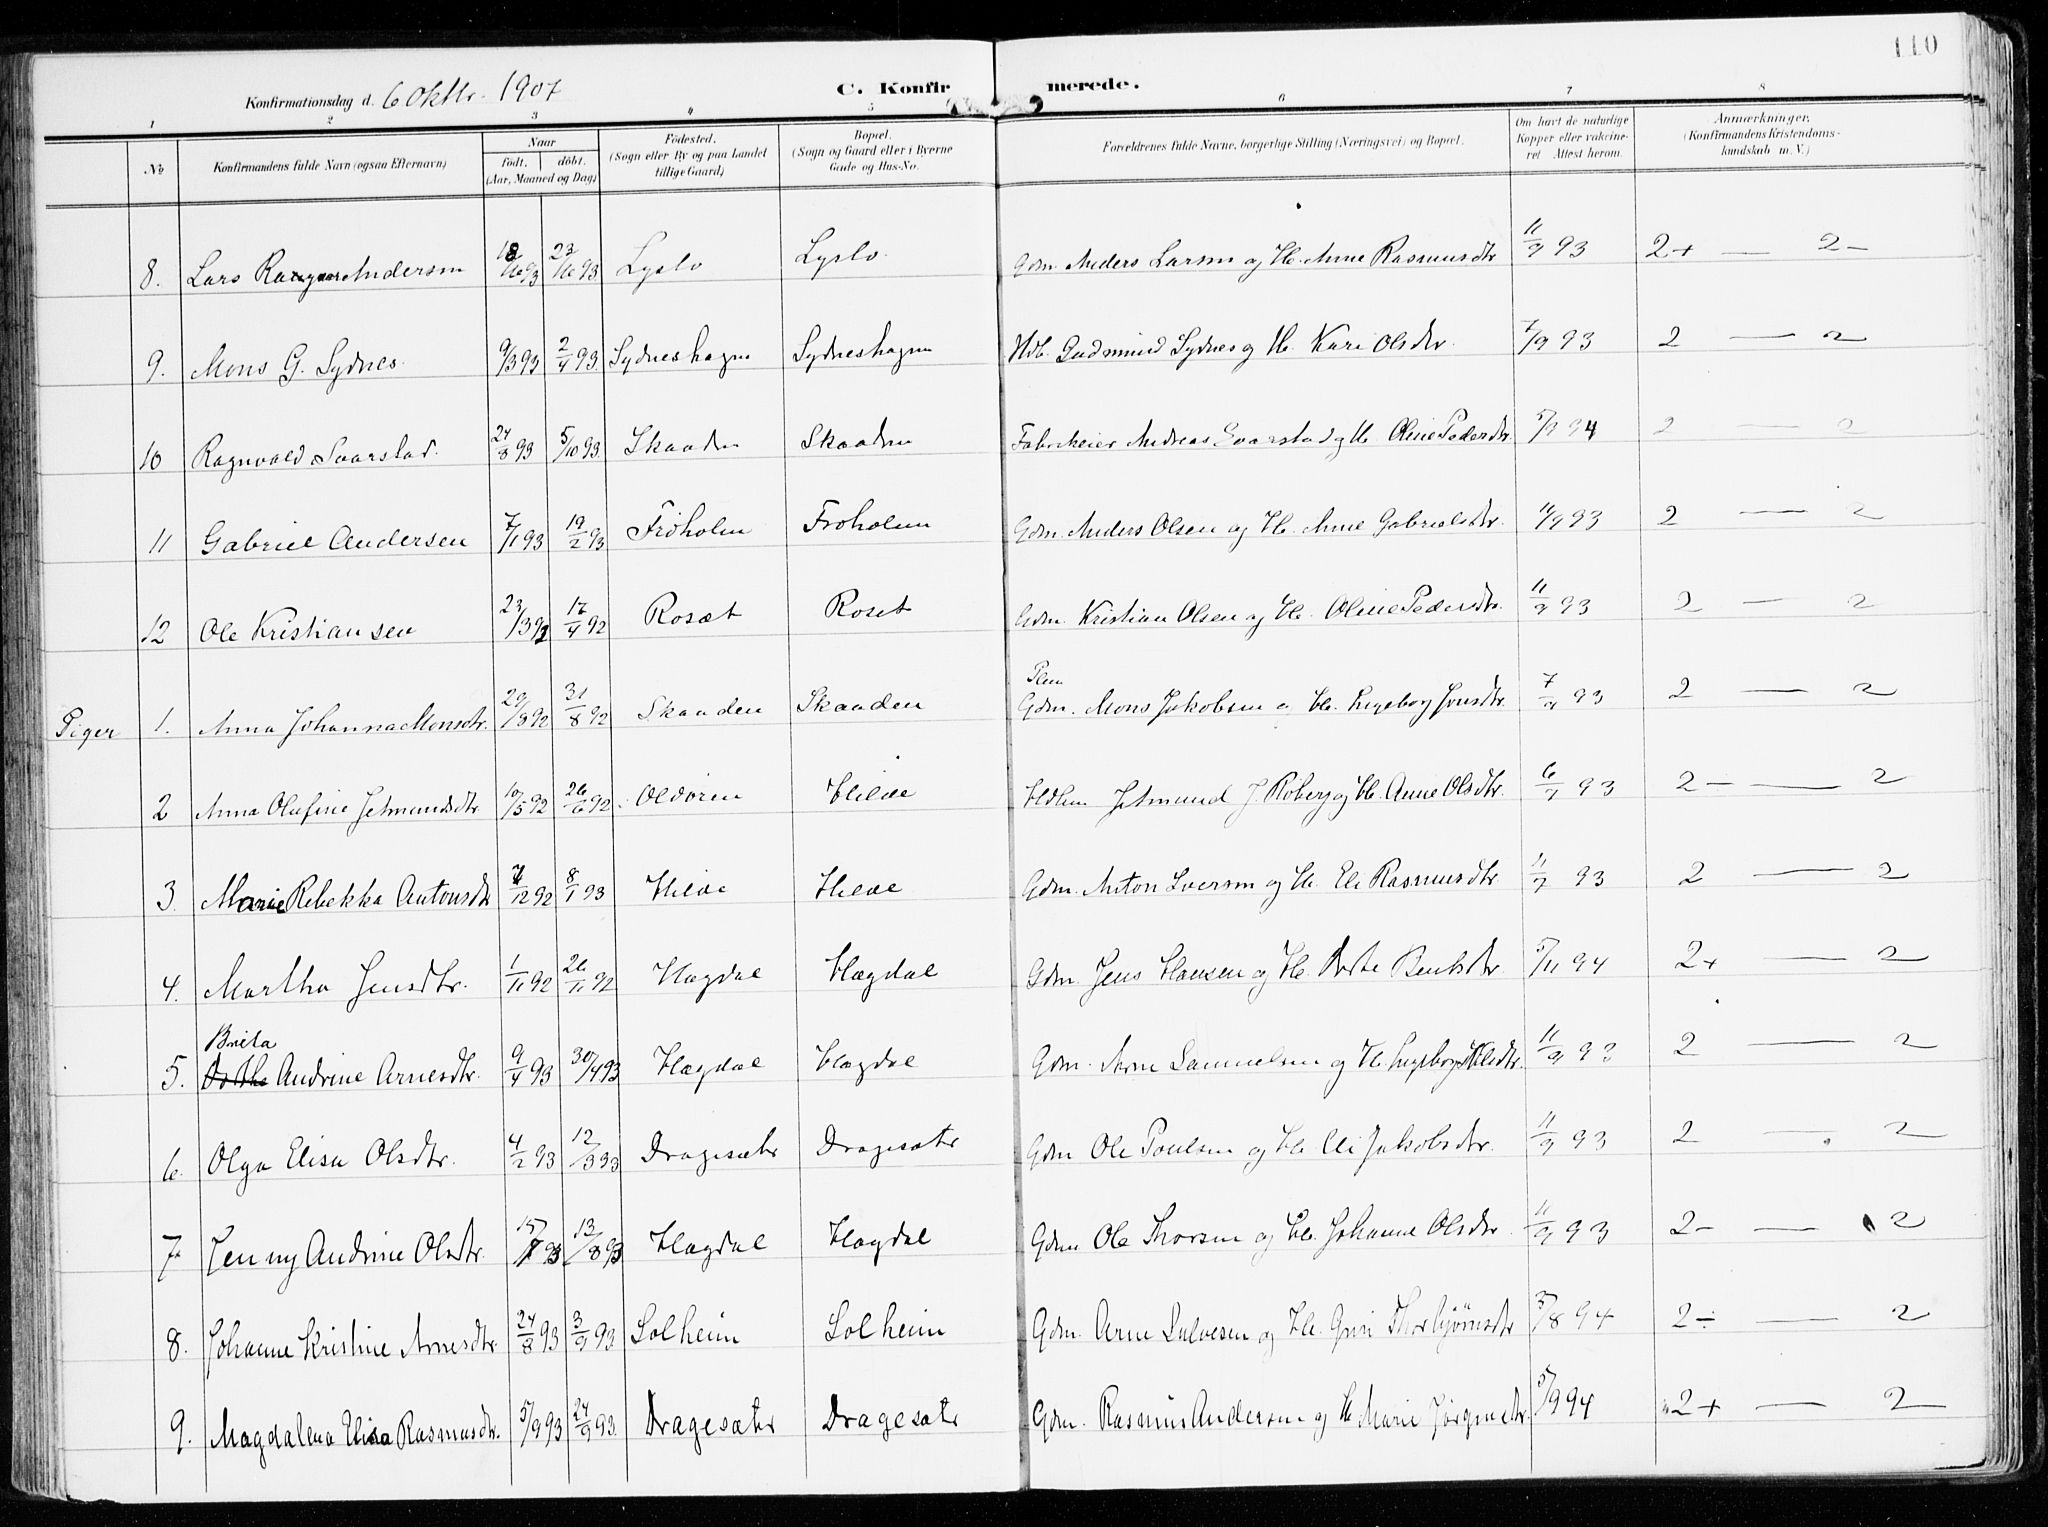 110
Konfirmationsdag d. 6 Oktbr. 1907 C. Konfirmerede.
1 2 3 4 5 6 7 8
No. Konfirmandens fulde Navn (ogsaa Efternavn) Naar født. døbt. (Aar, Maaned og Dag) Födested. (Sogn eller By og paa Landet tillige Gaard) Bopæl. (Sogn og Gaard eller i Byerne Gade og Hus-No. Forældrenes fulde Navne, borgerlige Stilling (Næringsvei) og Bopæl. Om havt de naturlige Kopper eller vakcineret. Attest herom. Anmærkninger. (Konfirmandens Kristendomskundskab m. V.)
8. Lars Andersen 18/10 93 23/10 93 Lyslo Lyslo. Gdm. Anders Larsen og H. Anne Rasmusdtr 11/9 93 2+ — 2-
9. Mons G. Sydnes. 9/3 93 2/4 93. Sydneshagen Sydneshagen Hdb. Gudmund Sydnes og H. Kari Olsdtr. 7/9 93 2 — 2
10 Ragnvald Svarstad. 24/8 93 5/10 93. Skaaden Skaaden Fabrikeier Andreas Svarstad og H. Oline Pedersdtr. 5/9 94 2 — 2
11 Gabriel Andersen 7/1 93 19/2 93 Fröholm Froholm Gdm. Anders Olsen og H. Anne Gabrielsdtr. 11/9 93 2 — 2
12 Ole Kristiansen 23/3 92 17/4 92 Rosæt Roset Gdm. Kristian Olsen og H. Oline Pedersdtr. 11/9 93 2 — 2
Piger 1. Anna Johanna Monsdtr. 29/8 92 31/8 92 Skaaden Skaaden Gdm. Mons Jakobsen og H. Ingeborg Jonsdtr. 7/9 93 2 — 2
2 Anna Olufine Jetmundsdtr 10/5 92 26/6 92. Oldören Hilde Jetmund J. Roberg og H. Anne Olsdtr. 6/9 93 2- — 2
3. Marie Rebekka Antonsdtr 12 92 8/1 93 Hilde Hilde Gdm. Anton Iversen og H. Eli Rasmusdtr 11/9 93 2 — 2
4. Martha Jensdtr. 1/11 92 26/11 92 Hagdal Hægdal Gdm. Jens Hansen og H. Berte Bentsdtr. 5/11 94 2+ — 2
Brita
5. Andrine Arnesdtr. 9/4 93 30/4 93 Hægdal Hagdal Gdm. Arne Samuelsen og H. Ingeborg 11/9 93 2 — 2
6. Olga Elisa Olsdtr. 4/2 93 12/3 93 Dragesæter Dragesæter Gdm Ole Poulsen og H. Eli Jakobsdtr. 11/9 93 2 — 2
7 Jenny Andrine Olsdtr. 15/7 93 13/8 93 Hægdal Hagdal Gdm Ole Thorsen og H. Johanne Olsdtr. 11/9 93 2- — 2
8. Johanne Kristine Arnesdtr. 24/8 93 3/9 93. Solheim Solheim Gdm. Arne Salvesen og H. Guri Thorbjörnsdtr 5/8 94 2÷ — 2
9. Magdalena Elisa Rasmusdtr. 5/9 93 24/9 93. Dragesæter Dragesæter Gdm. Rasmus Andersen og H. Marie Jörgensdtr. 5/9 94 2+ — 2